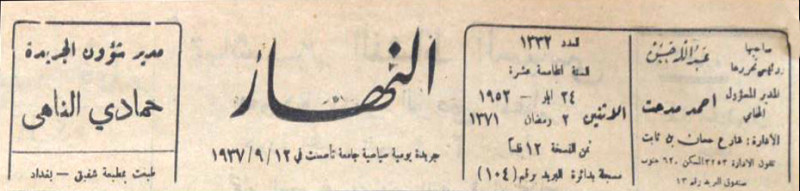 صاحبها
ورئيس تحريرها
عبدالله حسن
المدير المسؤول
المحامي
احمد مدحت
الادارة: شارع حسان بن ثابت
تلفون الادارة ٣٢٥٣ السكن ٦٢٠ جنوب
صندوق البريد رقم ١٣
العدد ١٣٣٢
السنة الخامسة عشرة
الاثنين
٢٤ ايار — ١٩٥٢
٢ رمضان ١٣٧١
ثمن النسخة ١٢ فلساً
مسجلة بدائرة البريد برقم (١٠٤)
النهار
جريدة يومية سياسية جامعة تأسست في ١٢/٩/١٩٣٧
مدير شؤون الجريدة
حمادي الناهي
طبعت بمطبعة شفيق — بغداد